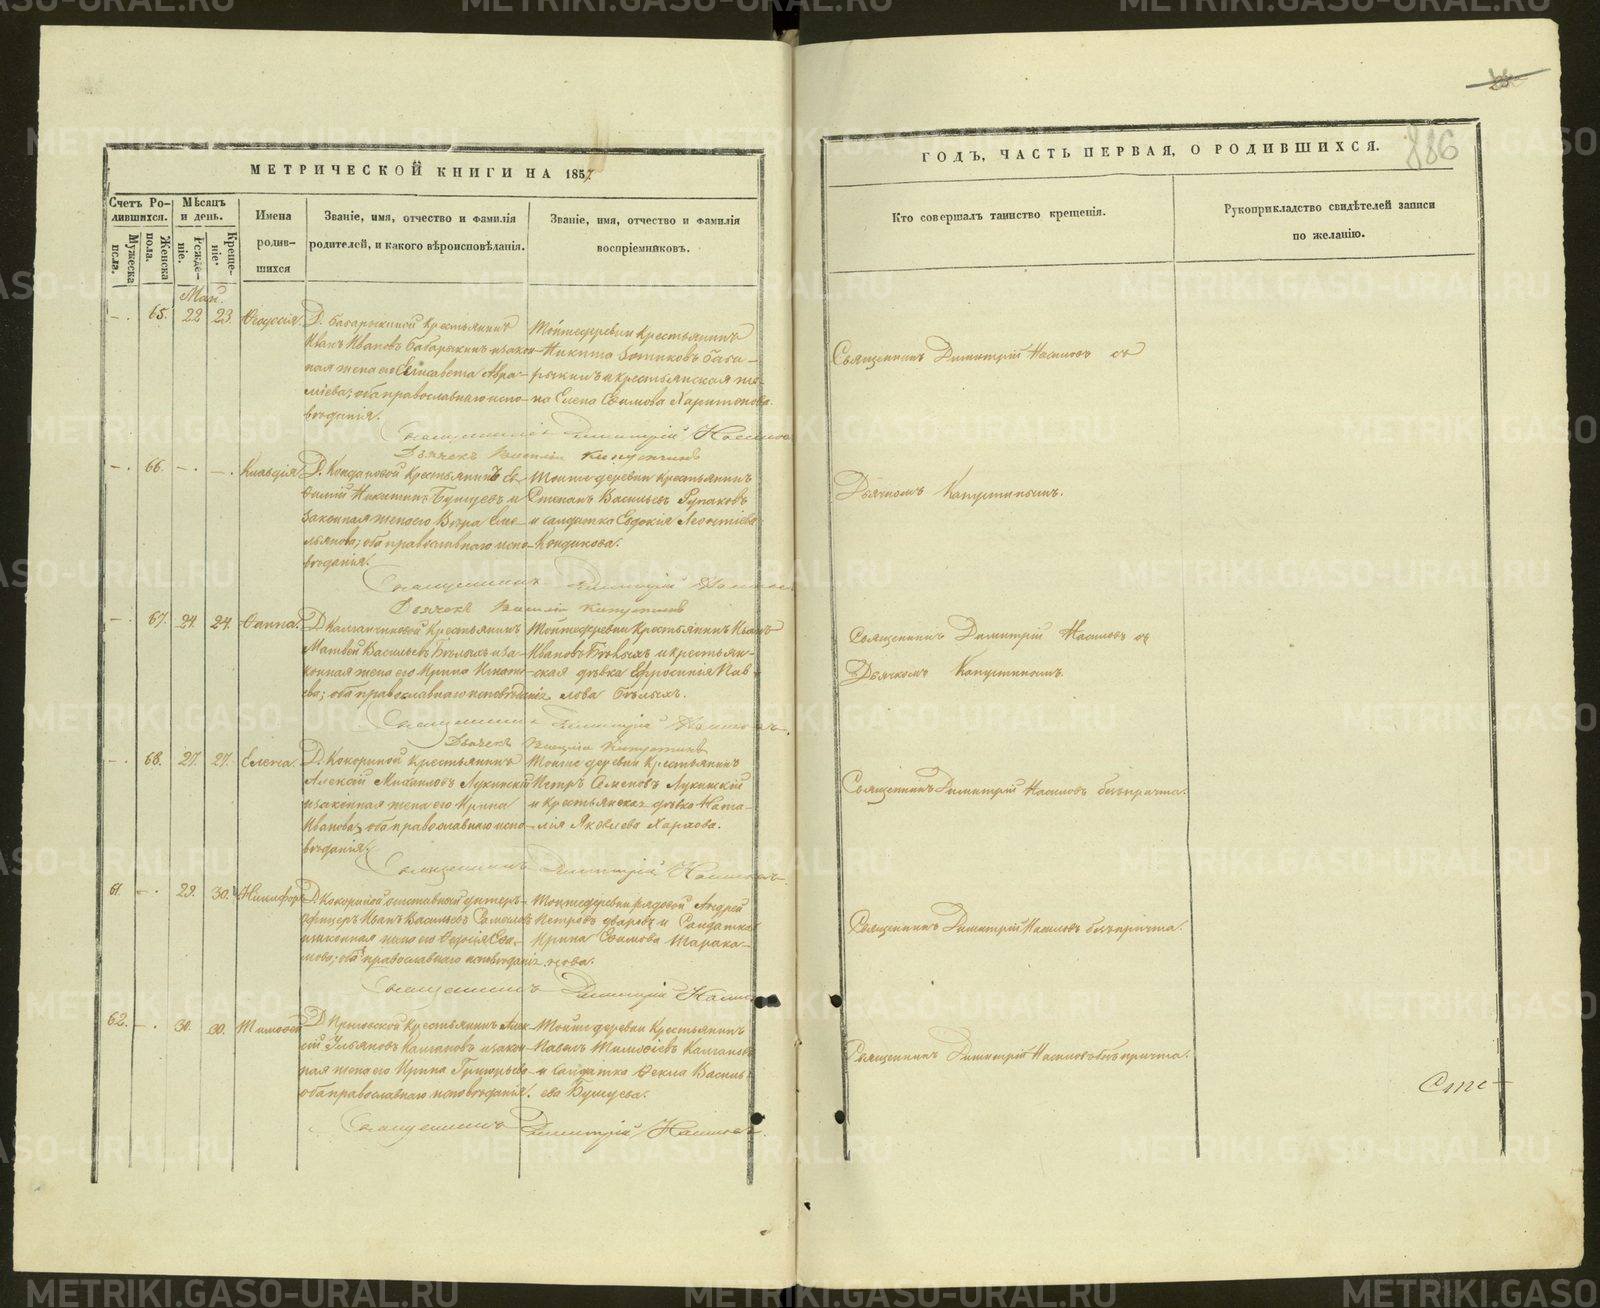 МЕТРИЧЕСКОЙ КНИГИ НА 1857
Счетъ Ро-
дившихся.
Мѣсяцъ
и день.
Мужеска
пола.
Женска
пола.
Рожде-
ніе.
Креще-
ніе.
Имена
родив-
шихся
Званіе, имя, отчество и фамилія
родителей, и какого вѣроисповѣданія.
Званіе, имя, отчество и фамилія
воспріемниковъ.
Май.
65. 22 23.
Д. Бабарыкиной Крестьянинъ
Иванъ Ивановъ Бабарыкинъ и закон-
ная жена его Елисавета Авра-
оба православнаго испо-
вѣданія.
Тойже деревни Крестьянинъ
Никита Зотиковъ Баба-
рыкинъ и крестьянская же-
на Елена Ефимова Харитонова.
Священникъ Димитрій Насилов
Дьячекъ Василій Капустинъ
66.
Крестьянинъ
Никитинъ Бунцевъ и
законная жена его Вѣра Еме-
льянова; оба православнаго испо-
вѣданія.
Тойже деревни Крестьянинъ
Степанъ Васильевъ Русаковъ
и солдатка Евдокія Леонтіева
Кондикова.
Священникъ Димитрій Насилов
Дьячекъ Василій Капустинъ
67. 24. 24.
Крестьянинъ
Матвей Васильевъ Бѣлыхъ и за-
конная жена его Ирина Игнать-
ева; оба православнаго исповѣданія
Тойже деревни Крестьянинъ Иванъ
Ивановъ Бѣлыхъ и крестьян-
ская дѣвка Ефросинія Пав-
лова Бѣлыхъ.
Священникъ Димитрій Насиловъ
Дьячекъ Василій Капустинъ
68. 27. 27. Елена.
Д. Кокориной Крестьянинъ
Алексій Михаиловъ Лукинскій
и законная жена его Ирина
Иванова, оба православнаго испо-
вѣданія.
Тойже деревни Крестьянинъ
Петръ Семеновъ Лукинскій
и Крестьянская дѣвка Ната-
лія Яковлева
Священникъ Димитрій Насиловъ
61. 29. 30. Никифоръ
Д. Кокориной отставной унтеръ-
офицеръ Иванъ Васильевъ
и законная жена его
оба православнаго исповѣданія
Тойже деревни рядовой Андрей
Петровъ и Солдатка
Ирина Ефимова Тарака-
нова.
Священникъ Димитрій Насилов
62. 30. 30. Тимофей
Крестьянинъ Алек-
сій Ульяновъ Калгановъ и закон-
ная жена его Ирина Григорьева
оба православнаго исповѣданія.
Тойже деревни Крестьянинъ
Павелъ Тимофіевъ Калгановъ
и солдатка Фекла Василь-
ева Бунцева.
Священникъ Димитрій Насиловъ.
886
ГОДЪ, ЧАСТЬ ПЕРВАЯ, О РОДИВШИХСЯ.
Кто совершалъ таинство крещенія.
Рукоприкладство свидѣтелей записи
по желанію.
Священникъ Димитрій Насиловъ съ
Дьячкомъ Капустинымъ.
Священникъ Димитрій Насиловъ съ
Дьячкомъ Капустинымъ.
Священникъ Димитрій Насиловъ безъ причта.
Священникъ Димитрій Насиловъ безъ причта.
Священникъ Димитрій Насиловъ безъ причта.
Сте-
METRIKI.GASO-URAL.RU